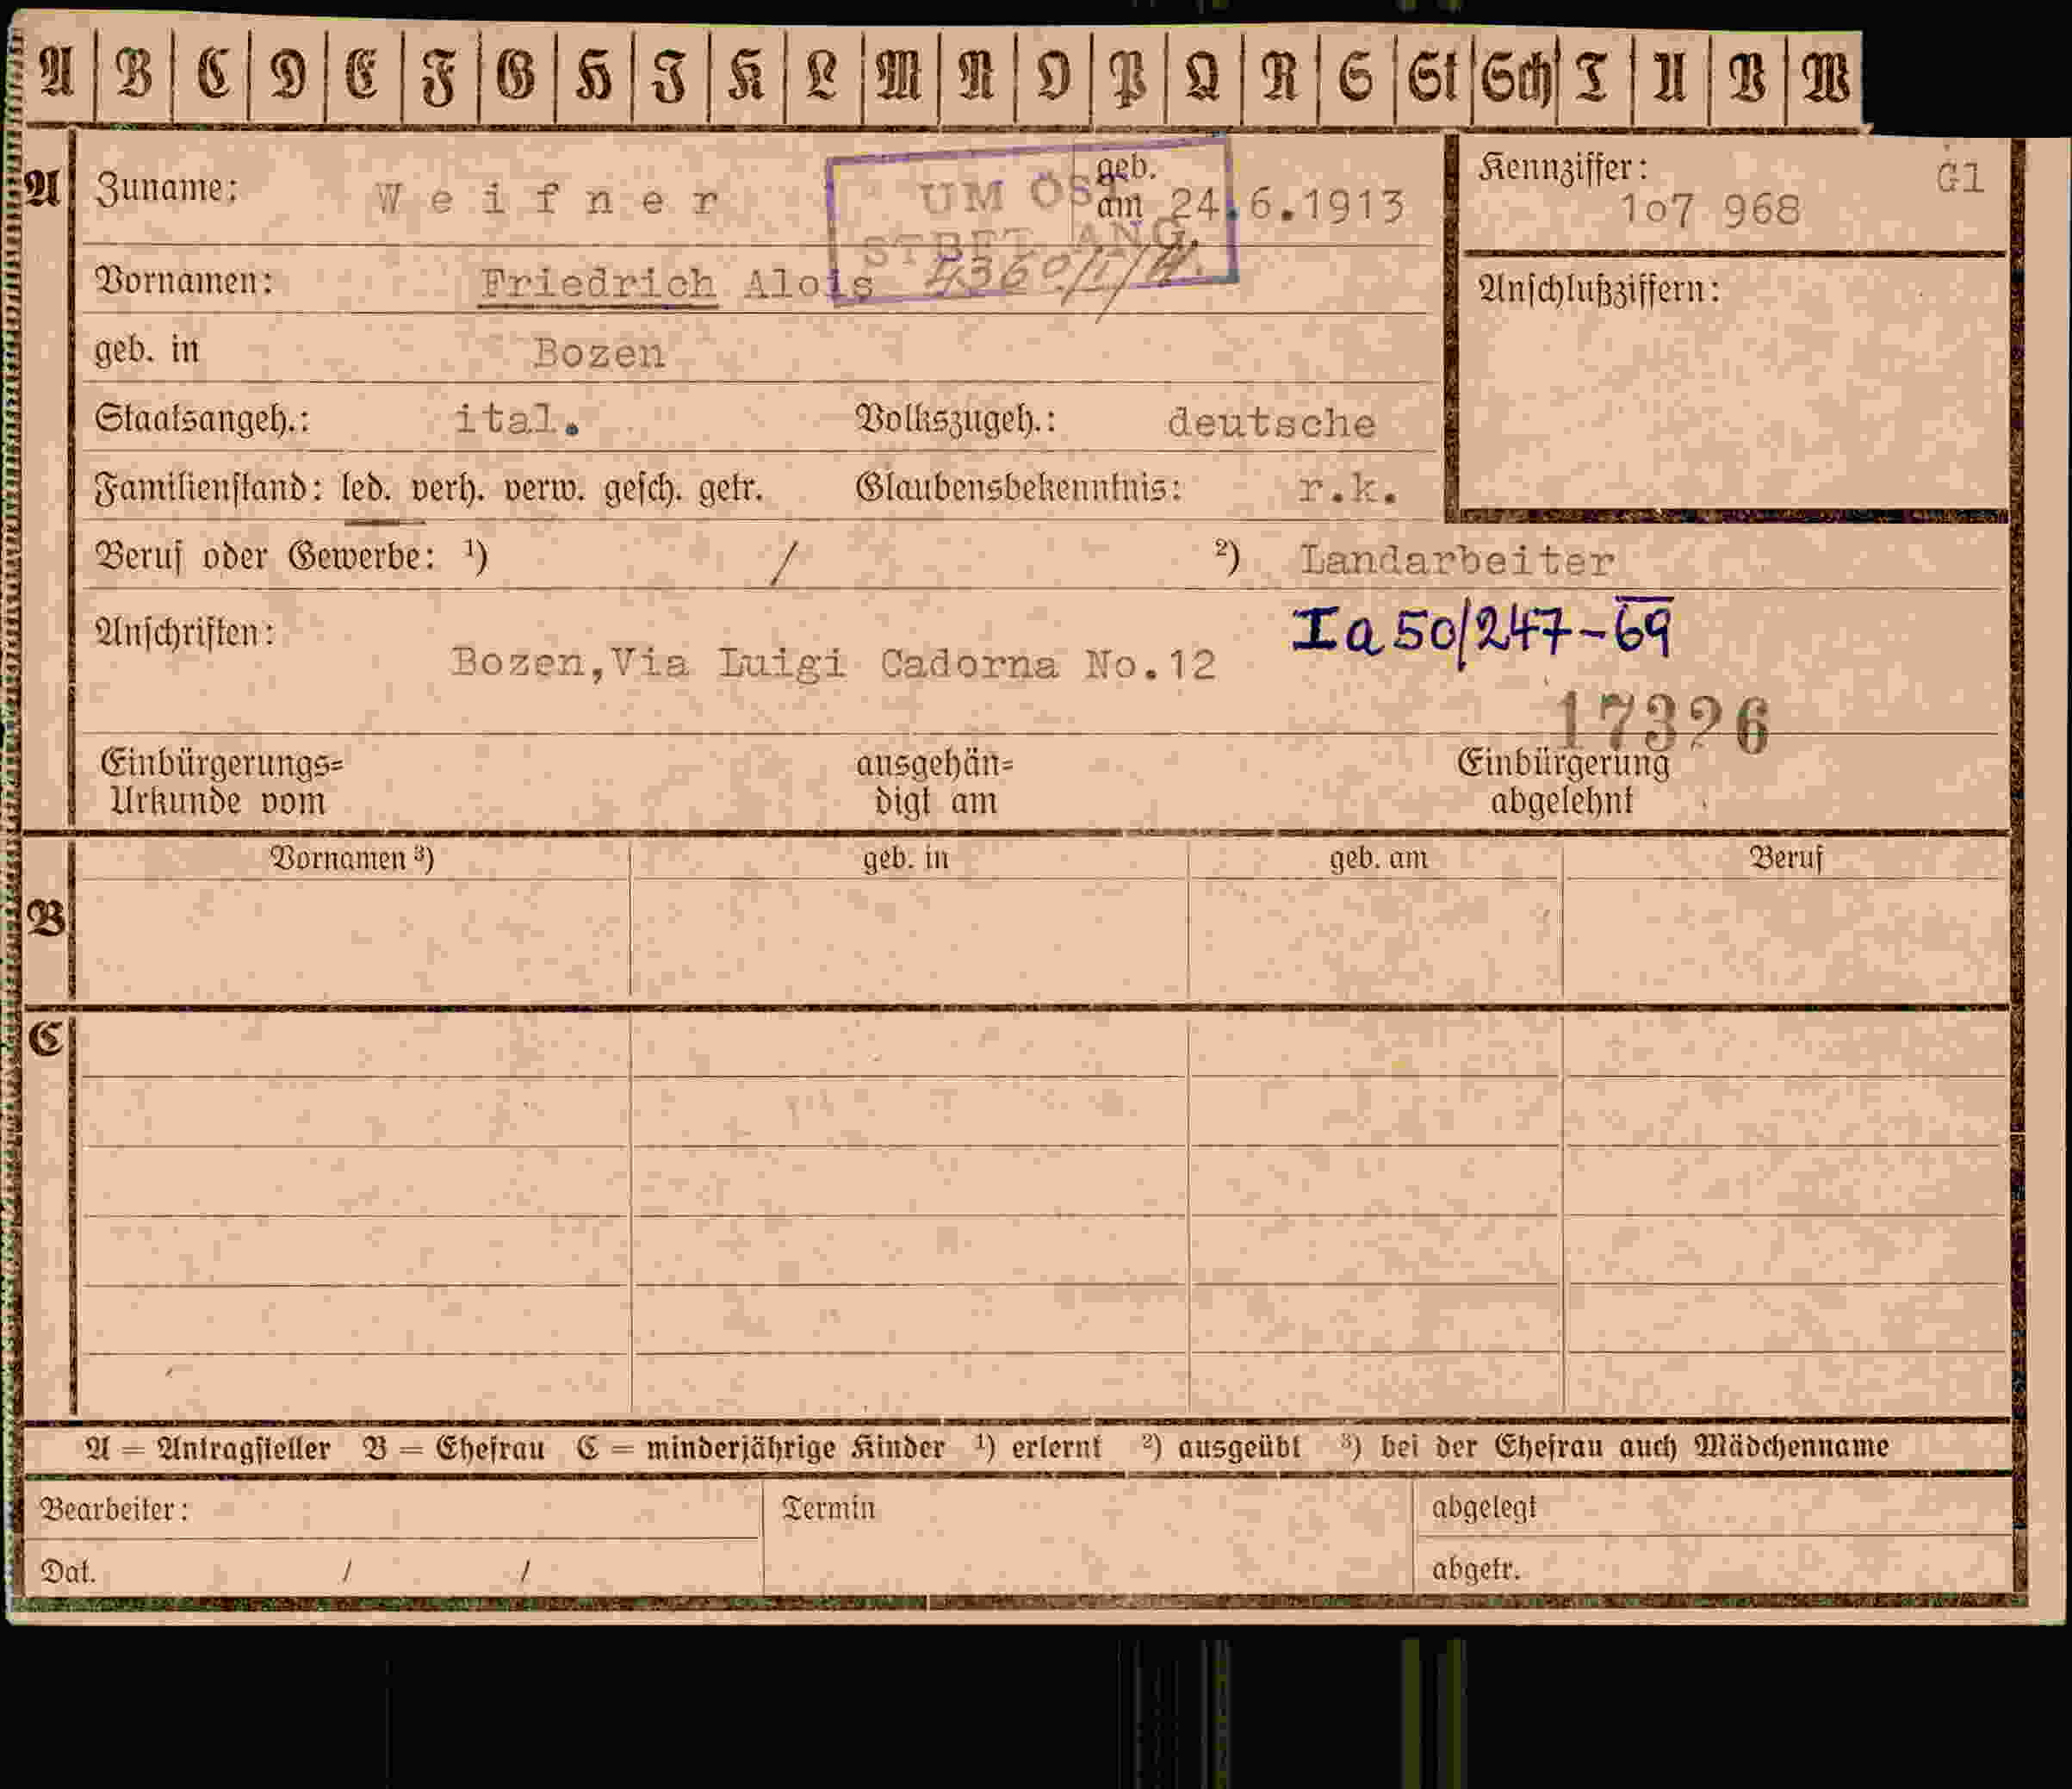 A B C D E F G H I K L M N O P Q R S St Sch T U V W
A Zuname: Weifner geb. am 24.6.1913 Kennziffer: 1o7 968 Gl
UM ÖST
STBET. ANG.
Vornamen: Friedrich Alois Anschlußziffern:
geb. in Bozen
Staatsangeh.: ital. Volkszugeh.: deutsche
Familienstand: led. verh. verw. gesch. getr. Glaubensbekenntnis: r.k.
Beruf oder Gewerbe: ¹) / ²) Landarbeiter
Anschriften: Ia 50/247-69
Bozen,Via Luigi Cadorna No.12
17326
Einbürgerungs= ausgehän= Einbürgerung
Urkunde vom digt am abgelehnt
Vornamen ³) geb. in geb. am Beruf
B
C
A = Antragsteller B = Ehefrau C = minderjährige Kinder ¹) erlernt ²) ausgeübt ³) bei der Ehefrau auch Mädchenname
Bearbeiter: Termin abgelegt
Dat. / / abgetr.